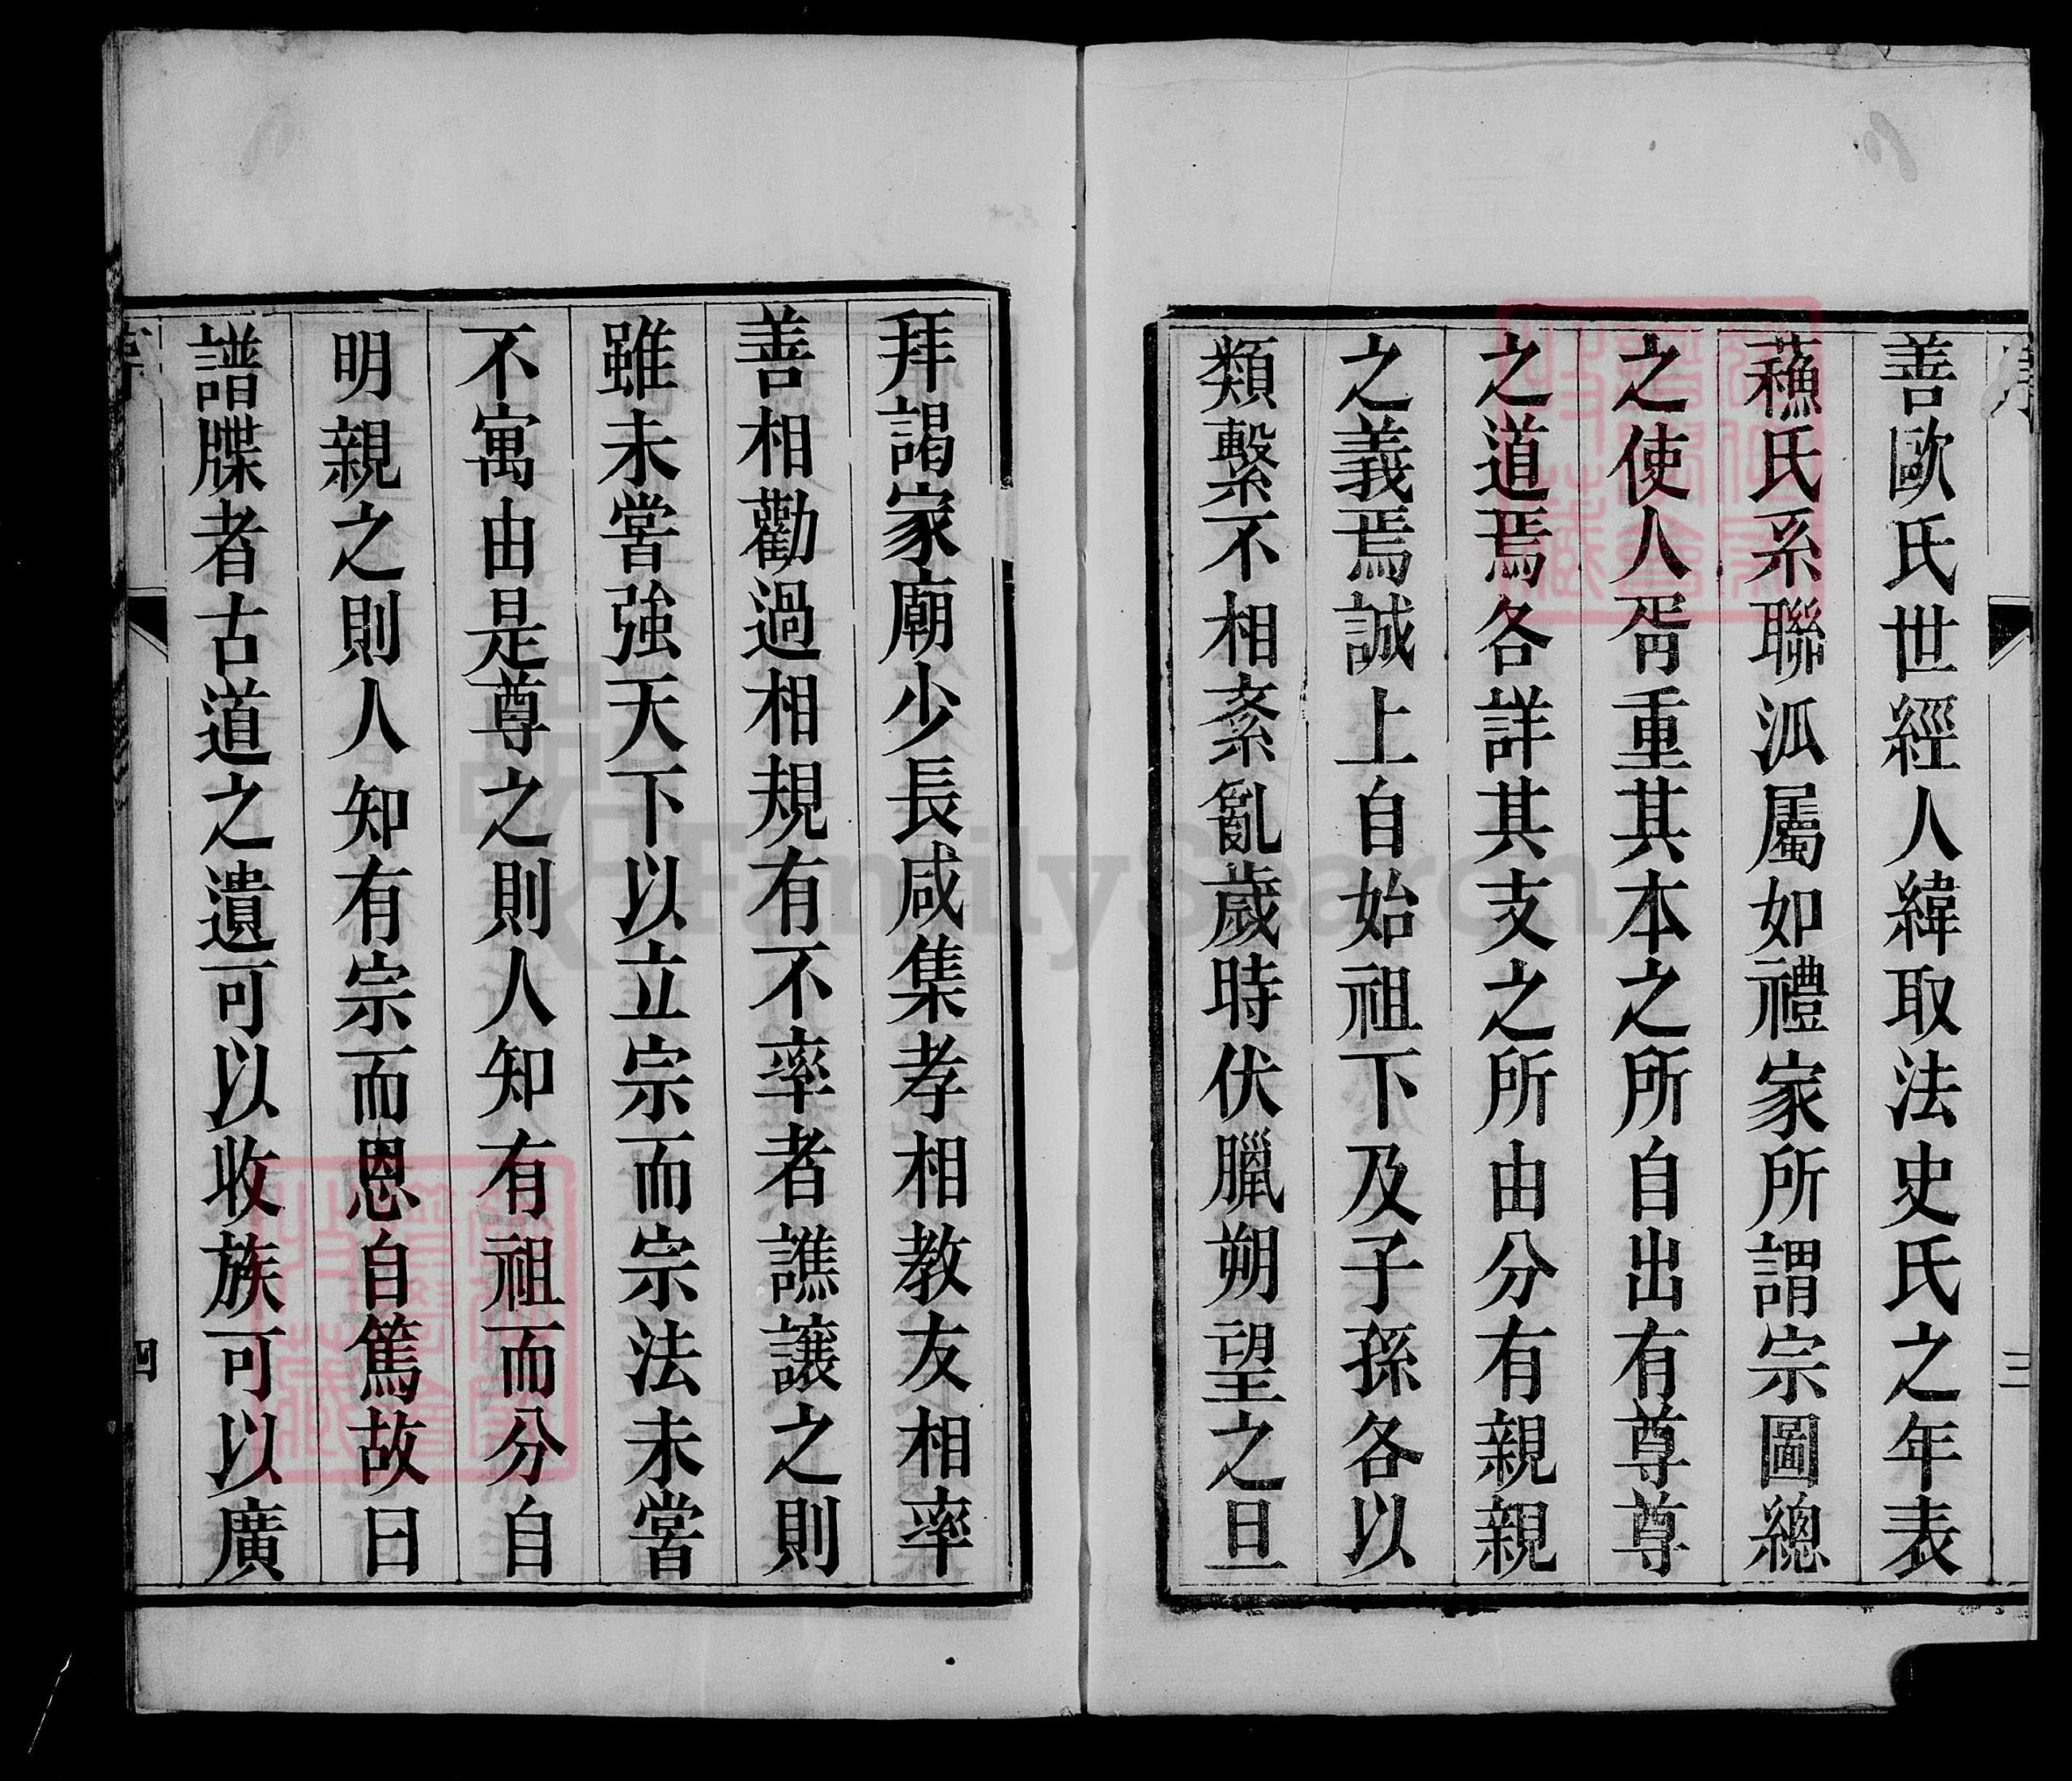 序
三
善歐氏世經人緯取法史氏之年表
蘓氏系聯泒屬如禮家所謂宗圖總
之使人胥重其本之所自出有尊尊
之道焉各詳其支之所由分有親親
之義焉誠上自始祖下及子孫各以
類繫不相紊亂歲時伏臘朔望之旦
拜謁家廟少長咸集孝相教友相率
善相勸過相規有不率者譙讓之則
雖未嘗強天下以立宗而宗法未嘗
不寓由是尊之則人知有祖而分自
明親之則人知有宗而恩自篤故曰
譜牒者古道之遺可以收族可以廣
四
FamilySearch